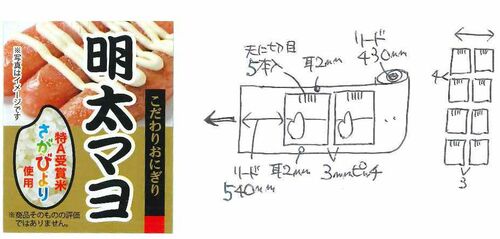 ※写真はイメージです
明太マヨ
こだわりおにぎり
特A受賞米
さがびより
使用
※商品そのものの評価
ではありません。
天に切目
5本入
耳2mm
リード
430mm
リード
540mm
耳2mm
3mm
4
3